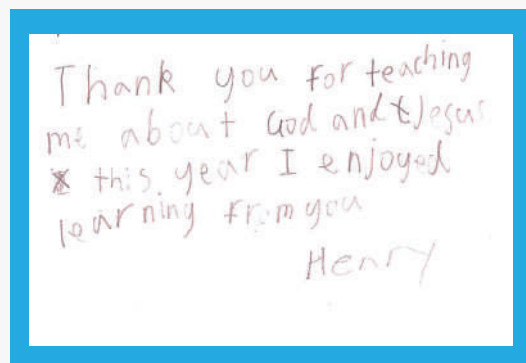 Thank you for teaching
me about God and Jesus
this year I enjoyed
learning from you
Henry